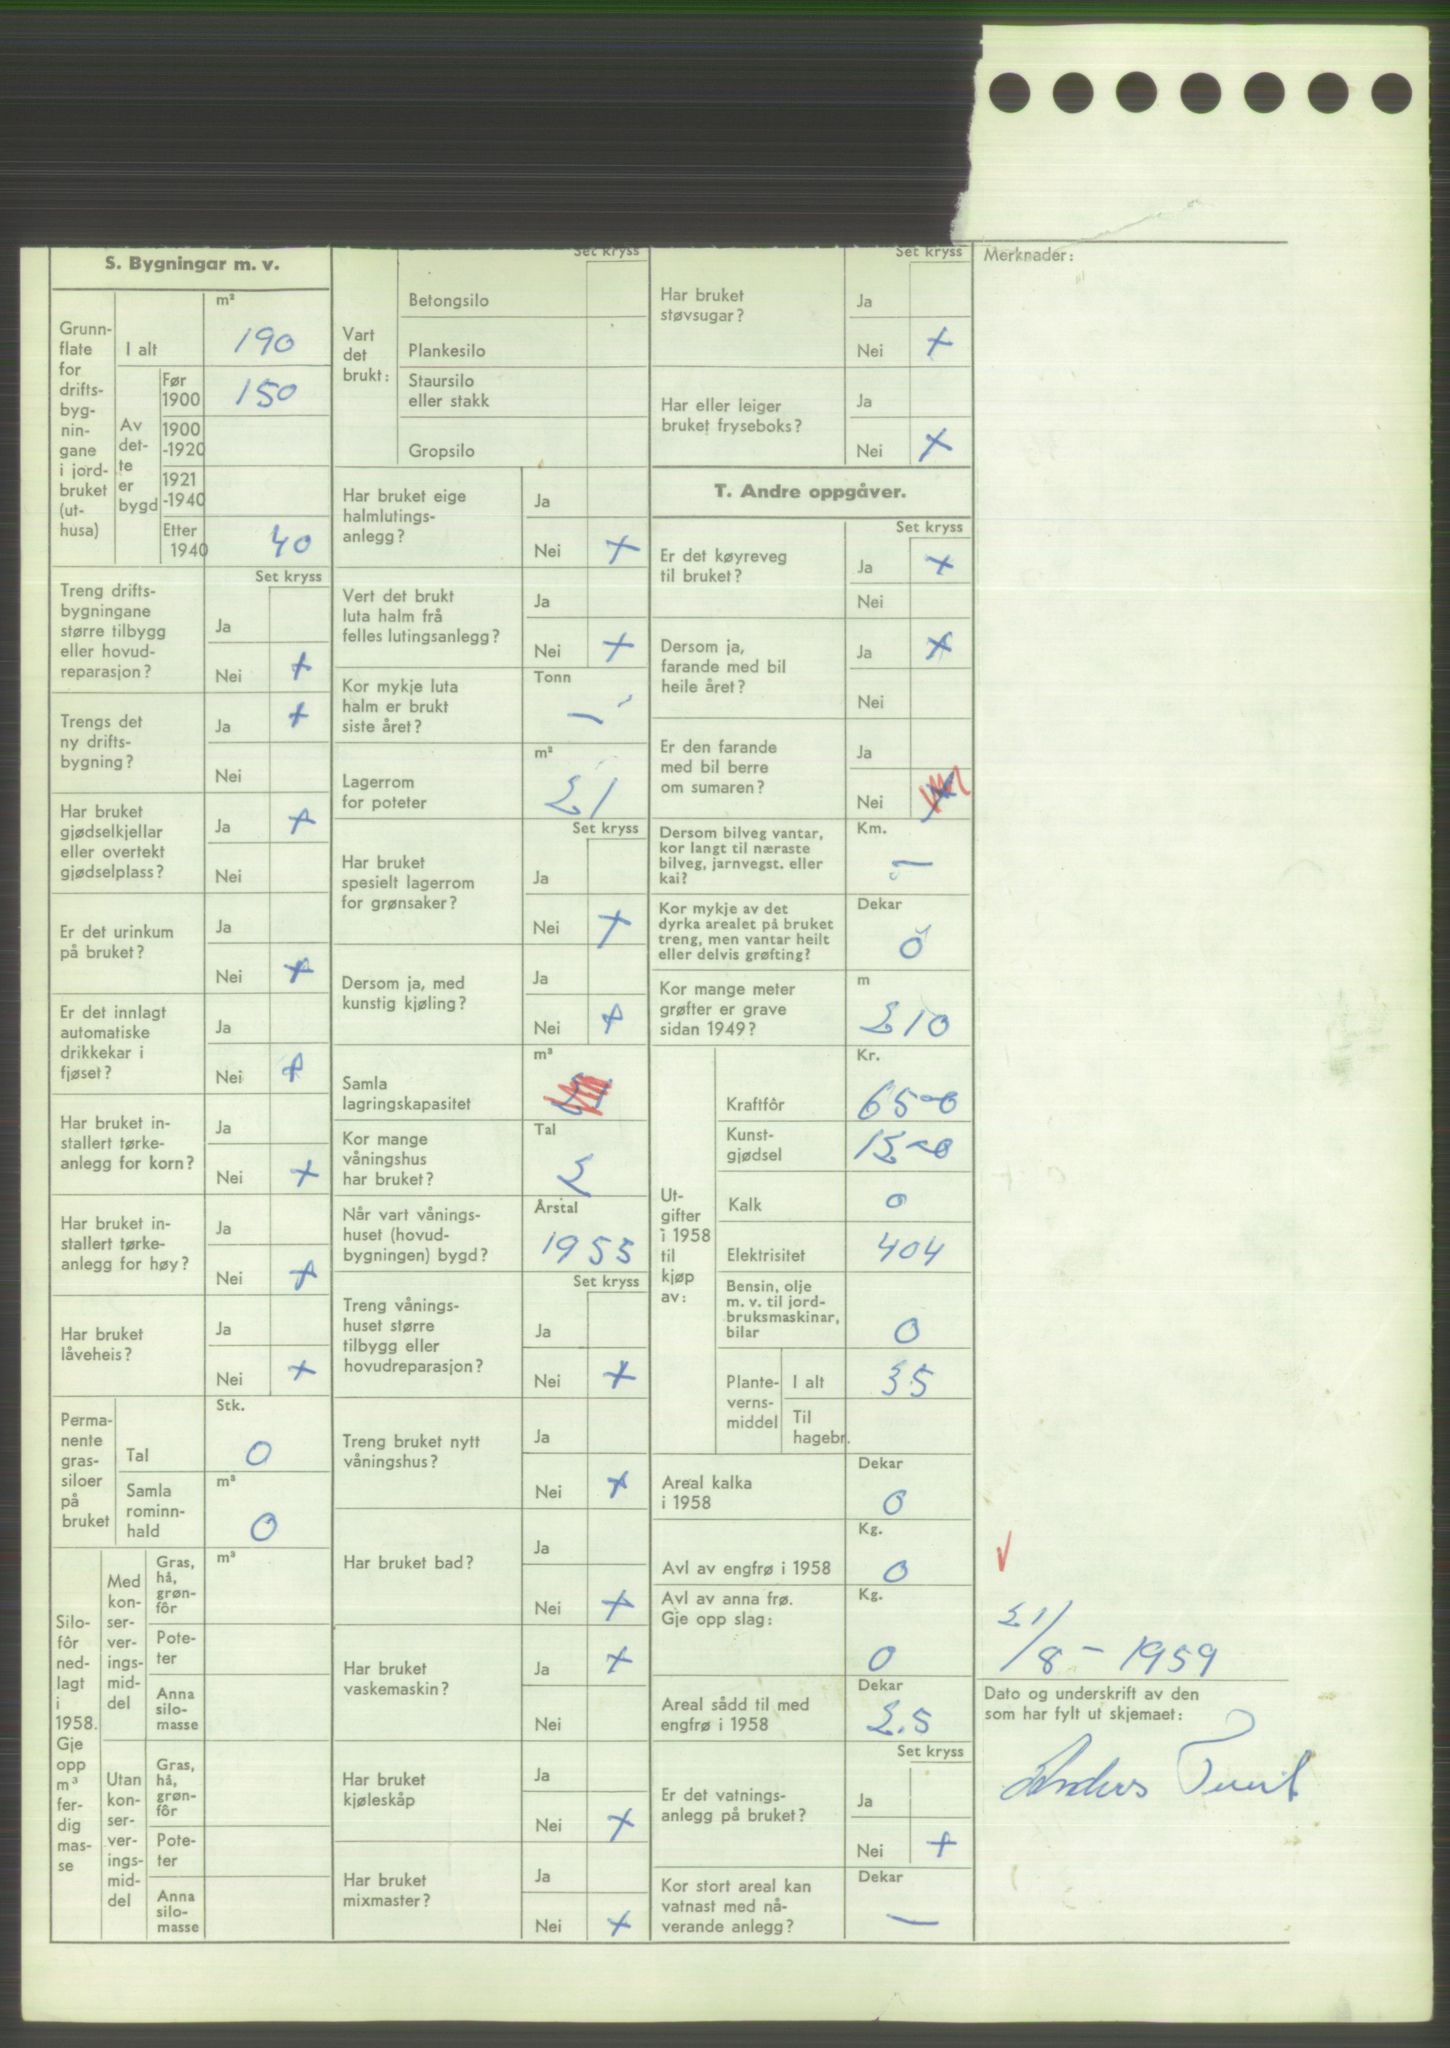 S. Bygningar m. v.
Grunn-
flate
for
drifts-
byg-
nin-
gane
i jord-
bruket
(ut-
husa)
m²
I alt 190
Av
det-
te
er
bygd
Før
1900 150
1900
-1920
1921
-1940
Etter
1940 40
Set kryss
Treng drifts-
bygningane
større tilbygg
eller hovud-
reparasjon?
Ja
Nei +
Trengs det
ny drifts-
bygning?
Ja +
Nei
Har bruket
gjødselkjellar
eller overtekt
gjødselplass?
Ja +
Nei
Er det urinkum
på bruket?
Ja
Nei +
Er det innlagt
automatiske
drikkekar i
fjøset?
Ja
Nei +
Har bruket in-
stallert tørke-
anlegg for korn?
Ja
Nei +
Har bruket in-
stallert tørke-
anlegg for høy?
Ja
Nei +
Har bruket
låveheis?
Ja
Nei +
Perma-
nente
gras-
siloer
på
bruket
Stk.
Tal 0
m³
Samla
rominn-
hald 0
Silo-
fôr
ned-
lagt
i
1958.
Gje
opp
m³
fer-
dig
mas-
se
m³
Med
kon-
ser-
ver-
ings-
mid-
del
Gras,
hå,
grøn-
fôr
Pote-
ter
Anna
silo-
masse
Utan
kon-
ser-
ver-
ings-
mid-
del
Gras,
hå,
grøn-
fôr
Pote-
ter
Anna
silo-
masse
Set kryss
Vart
det
brukt:
Betongsilo
Plankesilo
Staursilo
eller stakk
Gropsilo
Har bruket eige
halmlutings-
anlegg?
Ja
Nei +
Vert det brukt
luta halm frå
felles lutingsanlegg?
Ja
Nei +
Kor mykje luta
halm er brukt
siste året?
Tonn
—
Lagerrom
for poteter
m²
21
Set kryss
Har bruket
spesielt lagerrom
for grønsaker?
Ja
Nei +
Dersom ja, med
kunstig kjøling?
Ja
Nei +
Samla
lagringskapasitet
m³
Kor mange
våningshus
har bruket?
Tal
2
Når vart vånings-
huset (hovud-
bygningen) bygd?
Årstal
1953
Set kryss
Treng vånings-
huset større
tilbygg eller
hovudreparasjon?
Ja
Nei +
Treng bruket nytt
våningshus?
Ja
Nei +
Har bruket bad?
Ja
Nei +
Har bruket
vaskemaskin?
Ja +
Nei
Har bruket
kjøleskåp
Ja
Nei +
Har bruket
mixmaster?
Ja
Nei +
Set kryss
Har bruket
støvsugar?
Ja
Nei +
Har eller leiger
bruket fryseboks?
Ja
Nei +
T. Andre oppgåver.
Set kryss
Er det køyreveg
til bruket?
Ja +
Nei
Dersom ja,
farande med bil
heile året?
Ja +
Nei
Er den farande
med bil berre
om sumaren?
Ja
Nei
Dersom bilveg vantar,
kor langt til næraste
bilveg, jarnvegst. eller
kai?
Km.
—
Kor mykje av det
dyrka arealet på bruket
treng, men vantar heilt
eller delvis grøfting?
Dekar
0
Kor mange meter
grøfter er grave
sidan 1949?
m
210
Ut-
gifter
i 1958
til
kjøp
av:
Kr.
Kraftfôr 6500
Kunst-
gjødsel 1200
Kalk 0
Elektrisitet 404
Bensin, olje
m. v. til jord-
bruksmaskinar,
bilar 0
Plante-
verns-
middel
I alt 35
Til
hagebr.
Areal kalka
i 1958
Dekar
0
Avl av engfrø i 1958
Kg.
0
Avl av anna frø.
Gje opp slag:
Kg.
0
Areal sådd til med
engfrø i 1958
Dekar
2.5
Set kryss
Er det vatnings-
anlegg på bruket?
Ja
Nei +
Kor stort areal kan
vatnast med nå-
verande anlegg?
Dekar
—
Merknader:
21/8 - 1959
Dato og underskrift av den
som har fylt ut skjemaet:
Anders